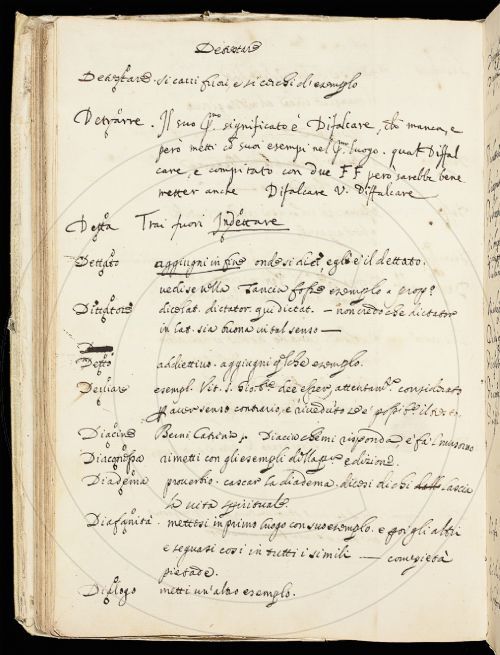 Detrarre
Detrattare. si cacci fuori e si cerchi d'esempio
Detrarre. Il suo p.º significato è Difalcare, che manca, e
però metti co' suoi esempi nel p.º luogo. qual Diffal
care, e compitato con due FF però sarebbe bene
metter anche Difalcare V. Diffalcare
Detta Trai fuori Indettare
Dettato aggiugni in fine onde si dice, egli è il dettato.
vedi se nella Tancia fosse esempio a prop.º
Dittatore dice lat. dictator. qui dictat. — non credo che dictator
in lat. sia buona in tal senso —
Detto addiettivo. aggiugni qualche esempio.
Deviare esempl. Vit. S. Giob. dee esser, attentam.te considerato
aver senso contrario, e riveduto se è possibile il testo
Diacine Berni Catrina. Diacin che mi risponda, e fa l'musorno
rimetti con gli esempli della p.a edizione.
Diadema proverbio. cascar la diadema. dicesi di chi lascia
la vita spirituale.
Diafanità. mettesi in primo luogo con suo esemplo. e poi gli altri
e seguasi così in tutti i simili — come pietà
pietade.
Dialogo metti un'altro esemplo.